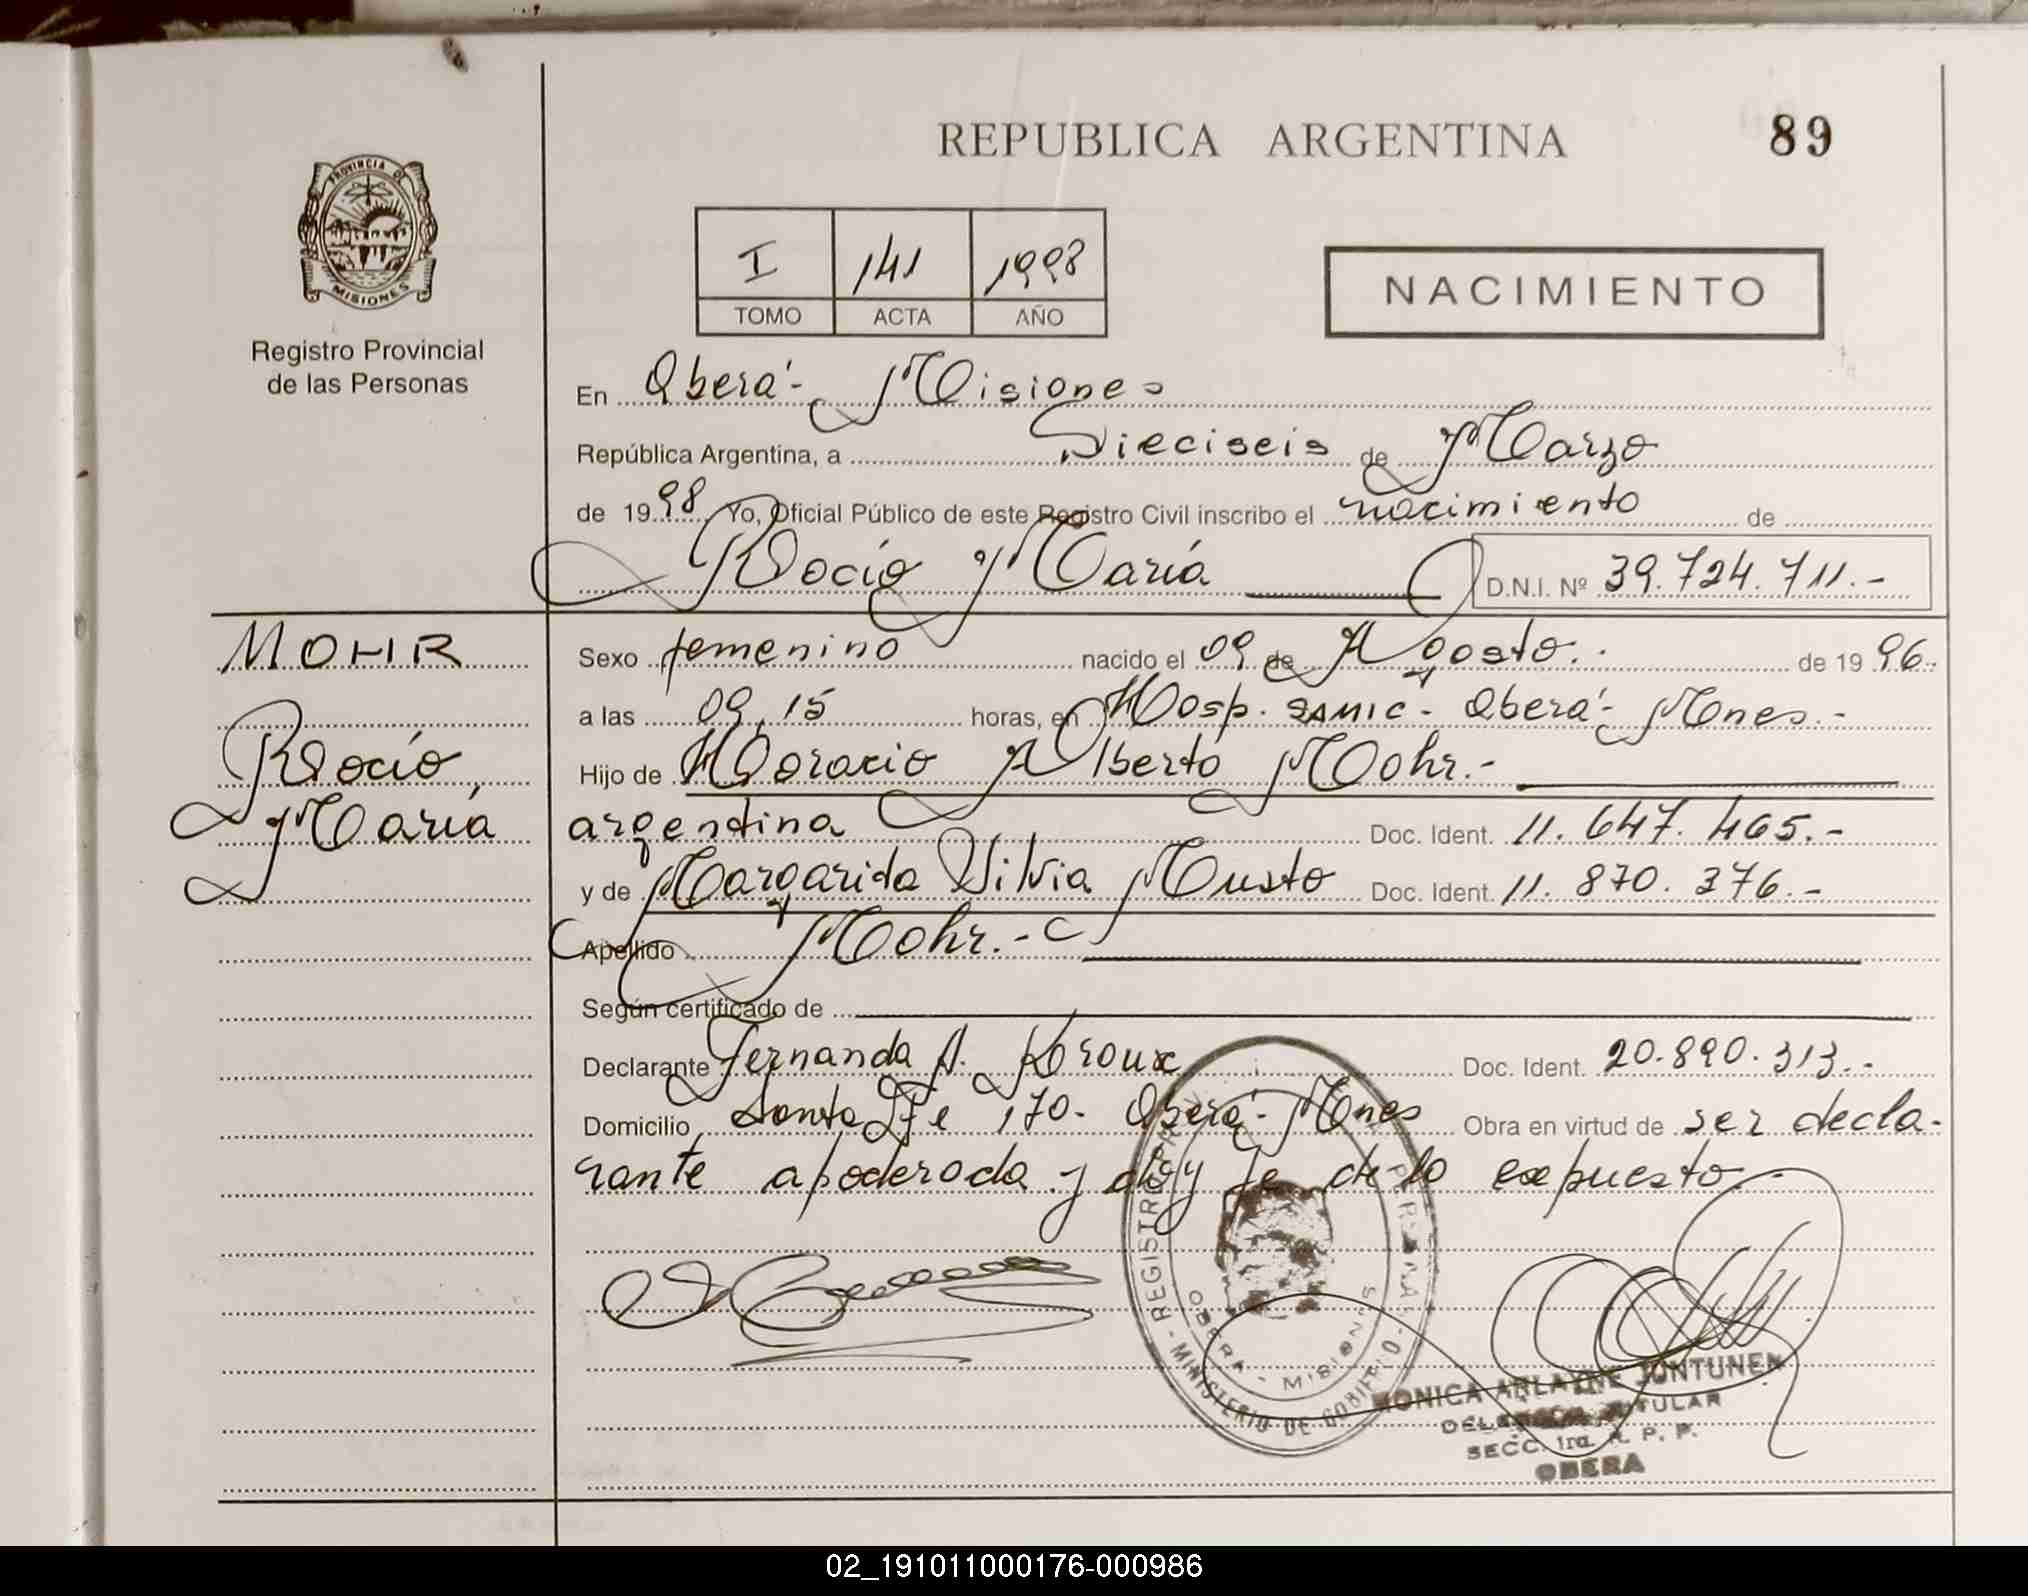 REPUBLICA ARGENTINA
89
PROVINCIA DE
MISIONES
Registro Provincial
de las Personas
I 141 1998
TOMO ACTA AÑO
NACIMIENTO
En Oberá- Misiones
República Argentina, a Dieciseis de Marzo
de 1998 Yo, Oficial Público de este Registro Civil inscribo el nacimiento de
Rocío María D.N.I. Nº 39.724.711.-
MOHR
Rocío,
María
Sexo femenino nacido el 09 de Agosto.- de 1996.
a las 09,15 horas, en Hosp. SAMIC - Oberá- Mnes.-
Hijo de Horacio Alberto Mohr.-
argentina Doc. Ident. 11.647.465.-
y de Margarida Silvia Musto Doc. Ident. 11.870.376.-
Apellido Mohr.-
Según certificado de
Declarante Fernanda A. Doc. Ident. 20.890.313.-
Domicilio Santa Fe 170- Oberá- Mnes Obra en virtud de ser decla-
rante apoderada y doy fe de lo expuesto.-
REGISTRO PERSONAS
MINISTERIO DE GOBIERNO
OBERA - MISIONES
MONICA ARLAYNE JUNTUNEN
TITULAR
SECC. 1ra. R. P. P.
OBERA
02_191011000176-000986